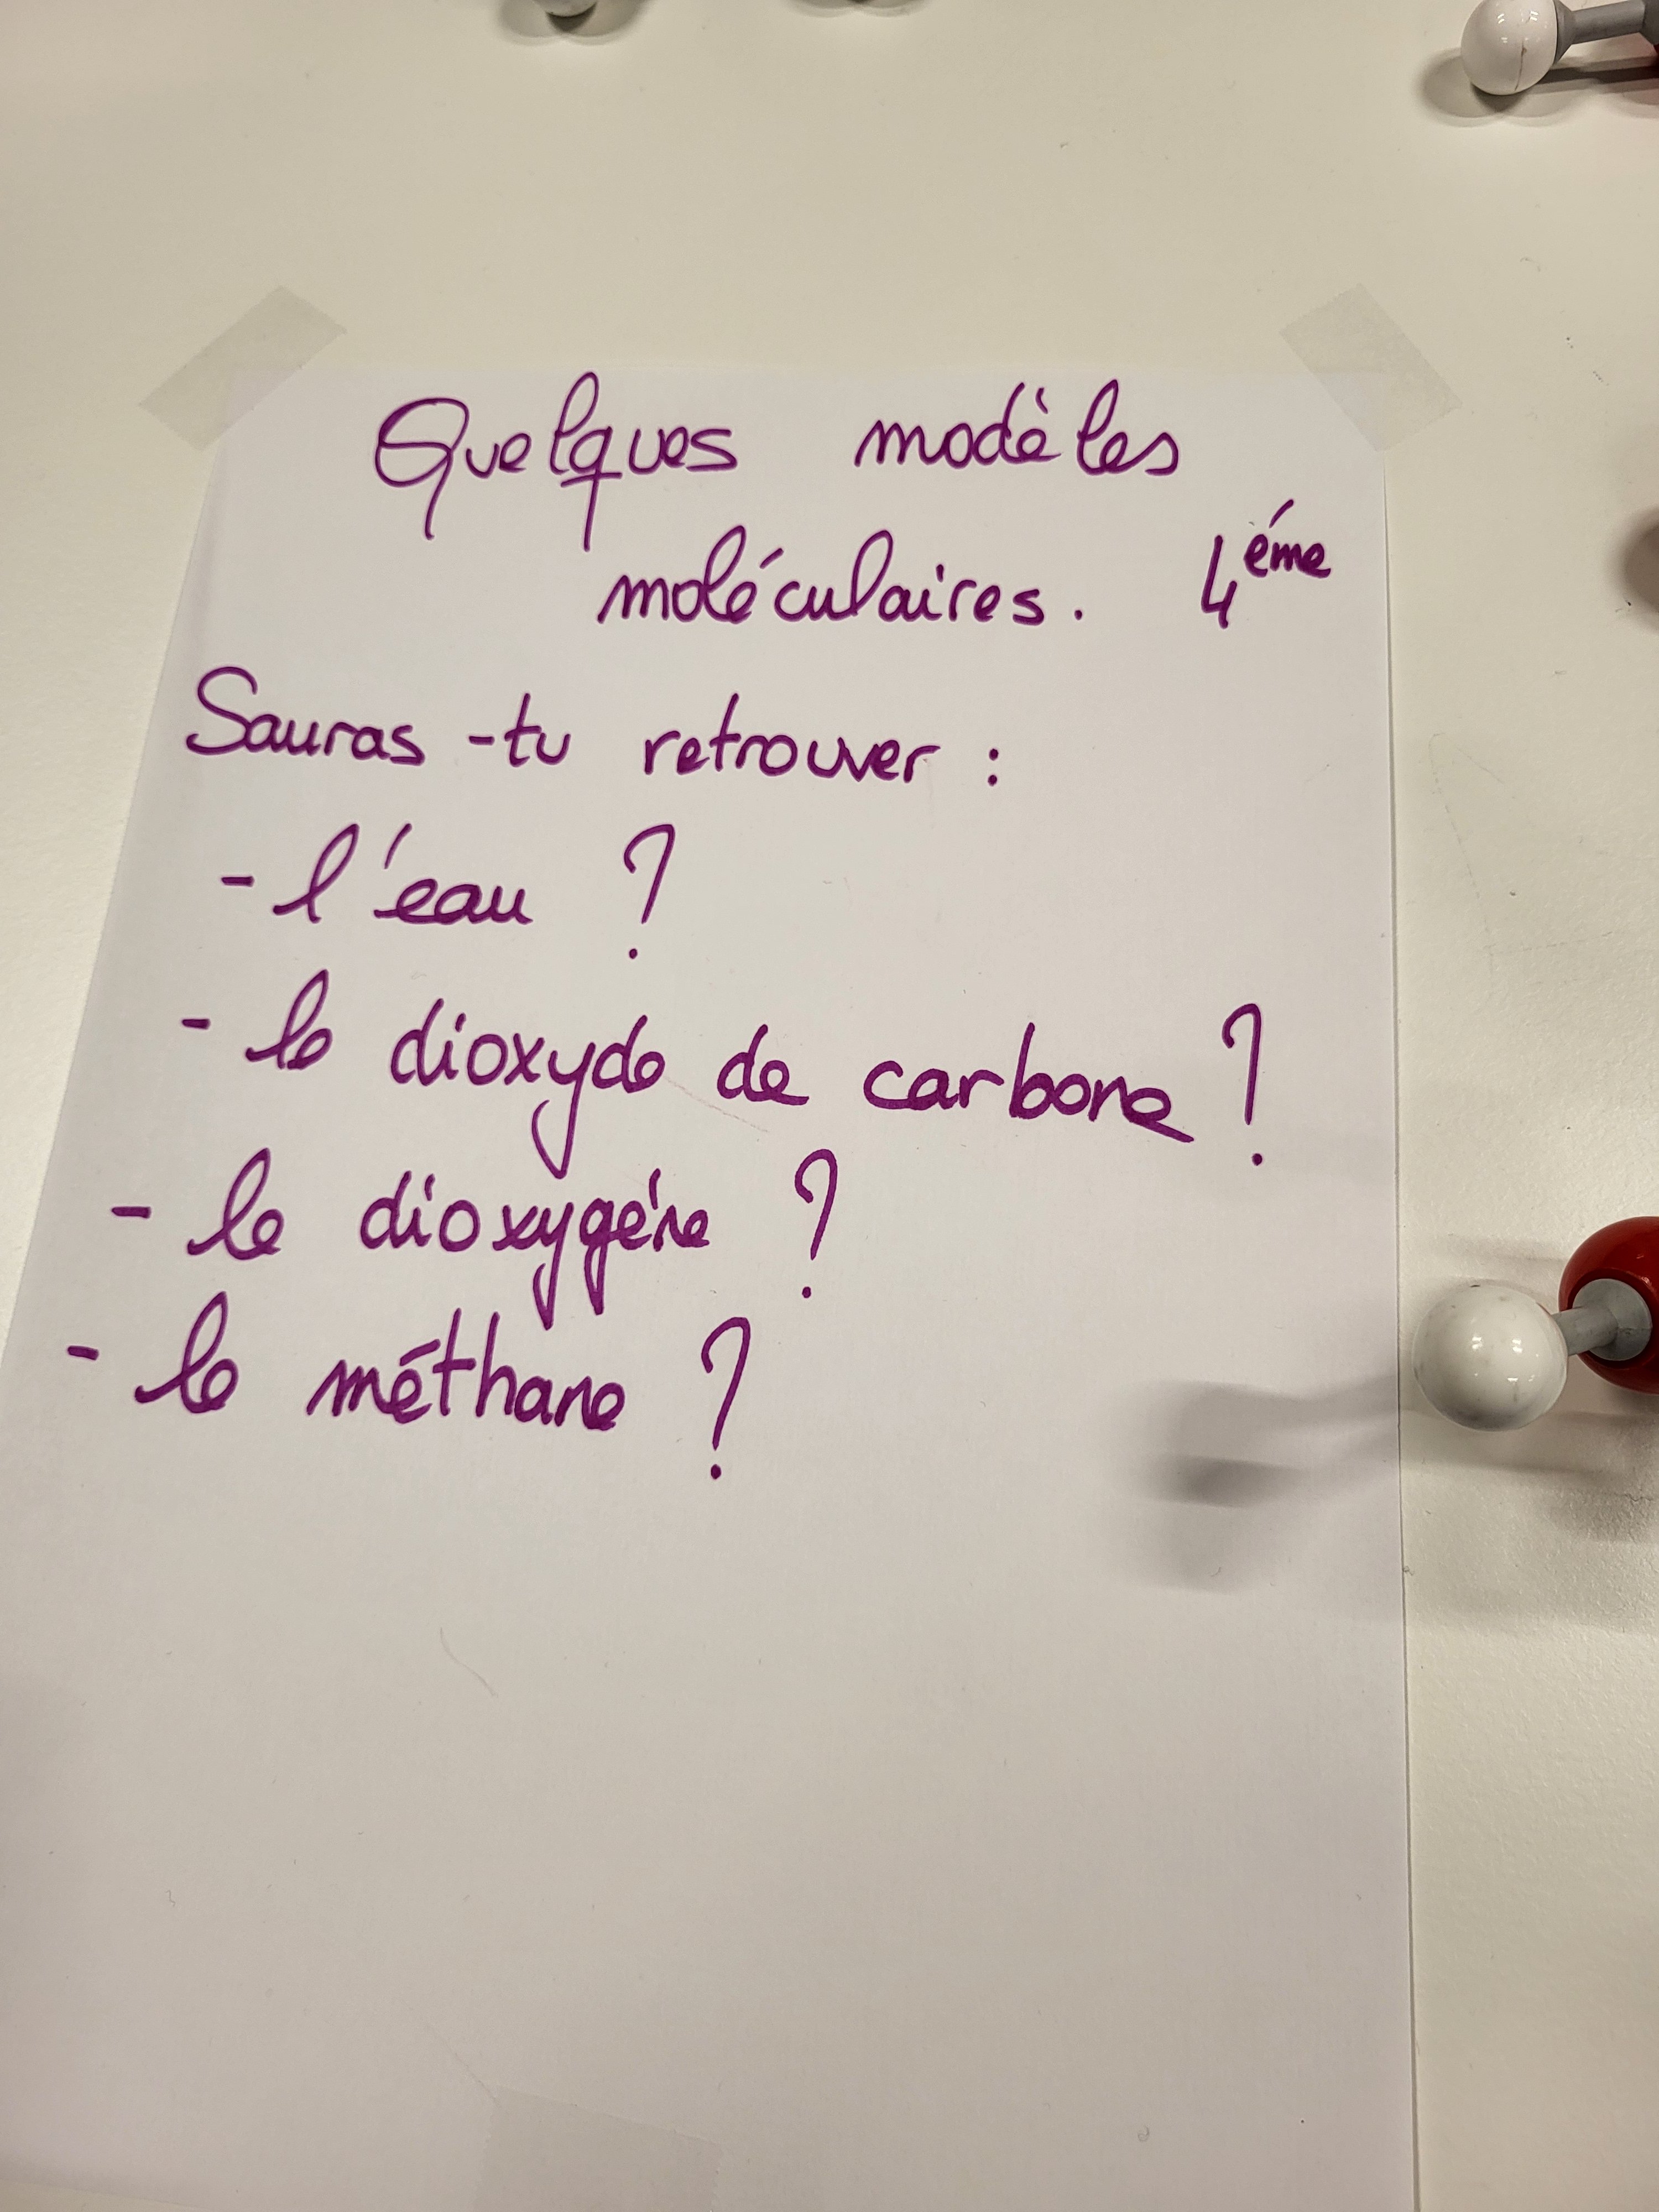 Quelques modèles
moléculaires. 4éme
Sauras-tu retrouver :
- l'eau ?
- le dioxyde de carbone ?
- le dioxygéne ?
- le méthane ?